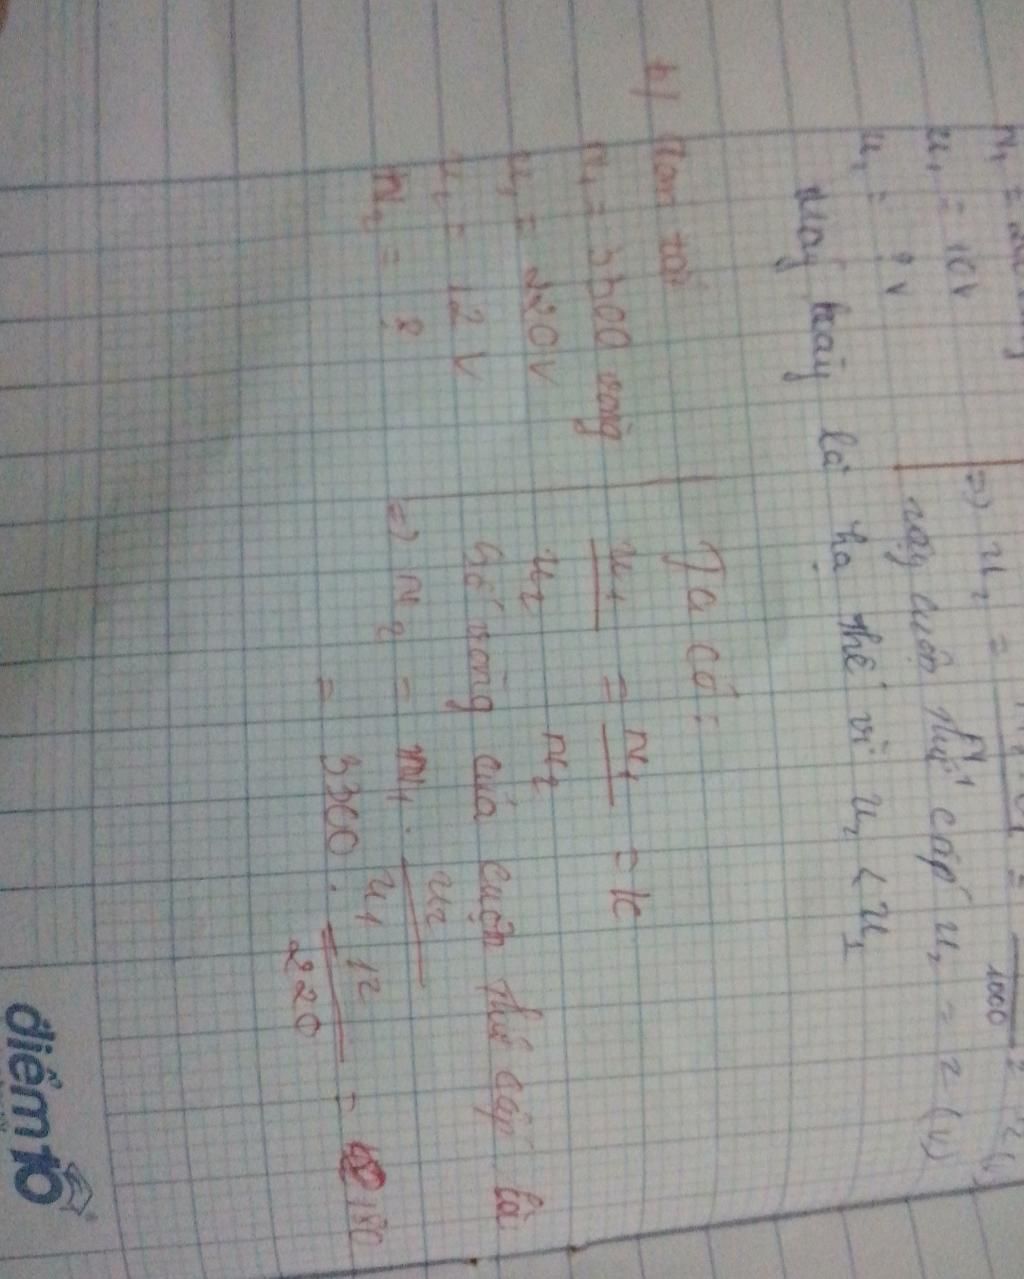 U₁ = 10V
U₂ = ? V
=) U₂ =
1000
vậy cuộn thứ cấp U₂ = 2 (V)
Máy này là hạ thế vì U₂ < U₁
b) Tóm tắt
N₁ = 3300 vòng
U₁ = 220V
U₂ = 12 V
N₂ = ?
Ta có:
U₁/U₂ = N₁/N₂ = k
Số vòng của cuộn thứ cấp là
=) N₂ = N₁ . U₂/U₁
= 3300 . 12/220 = 180
điểm10